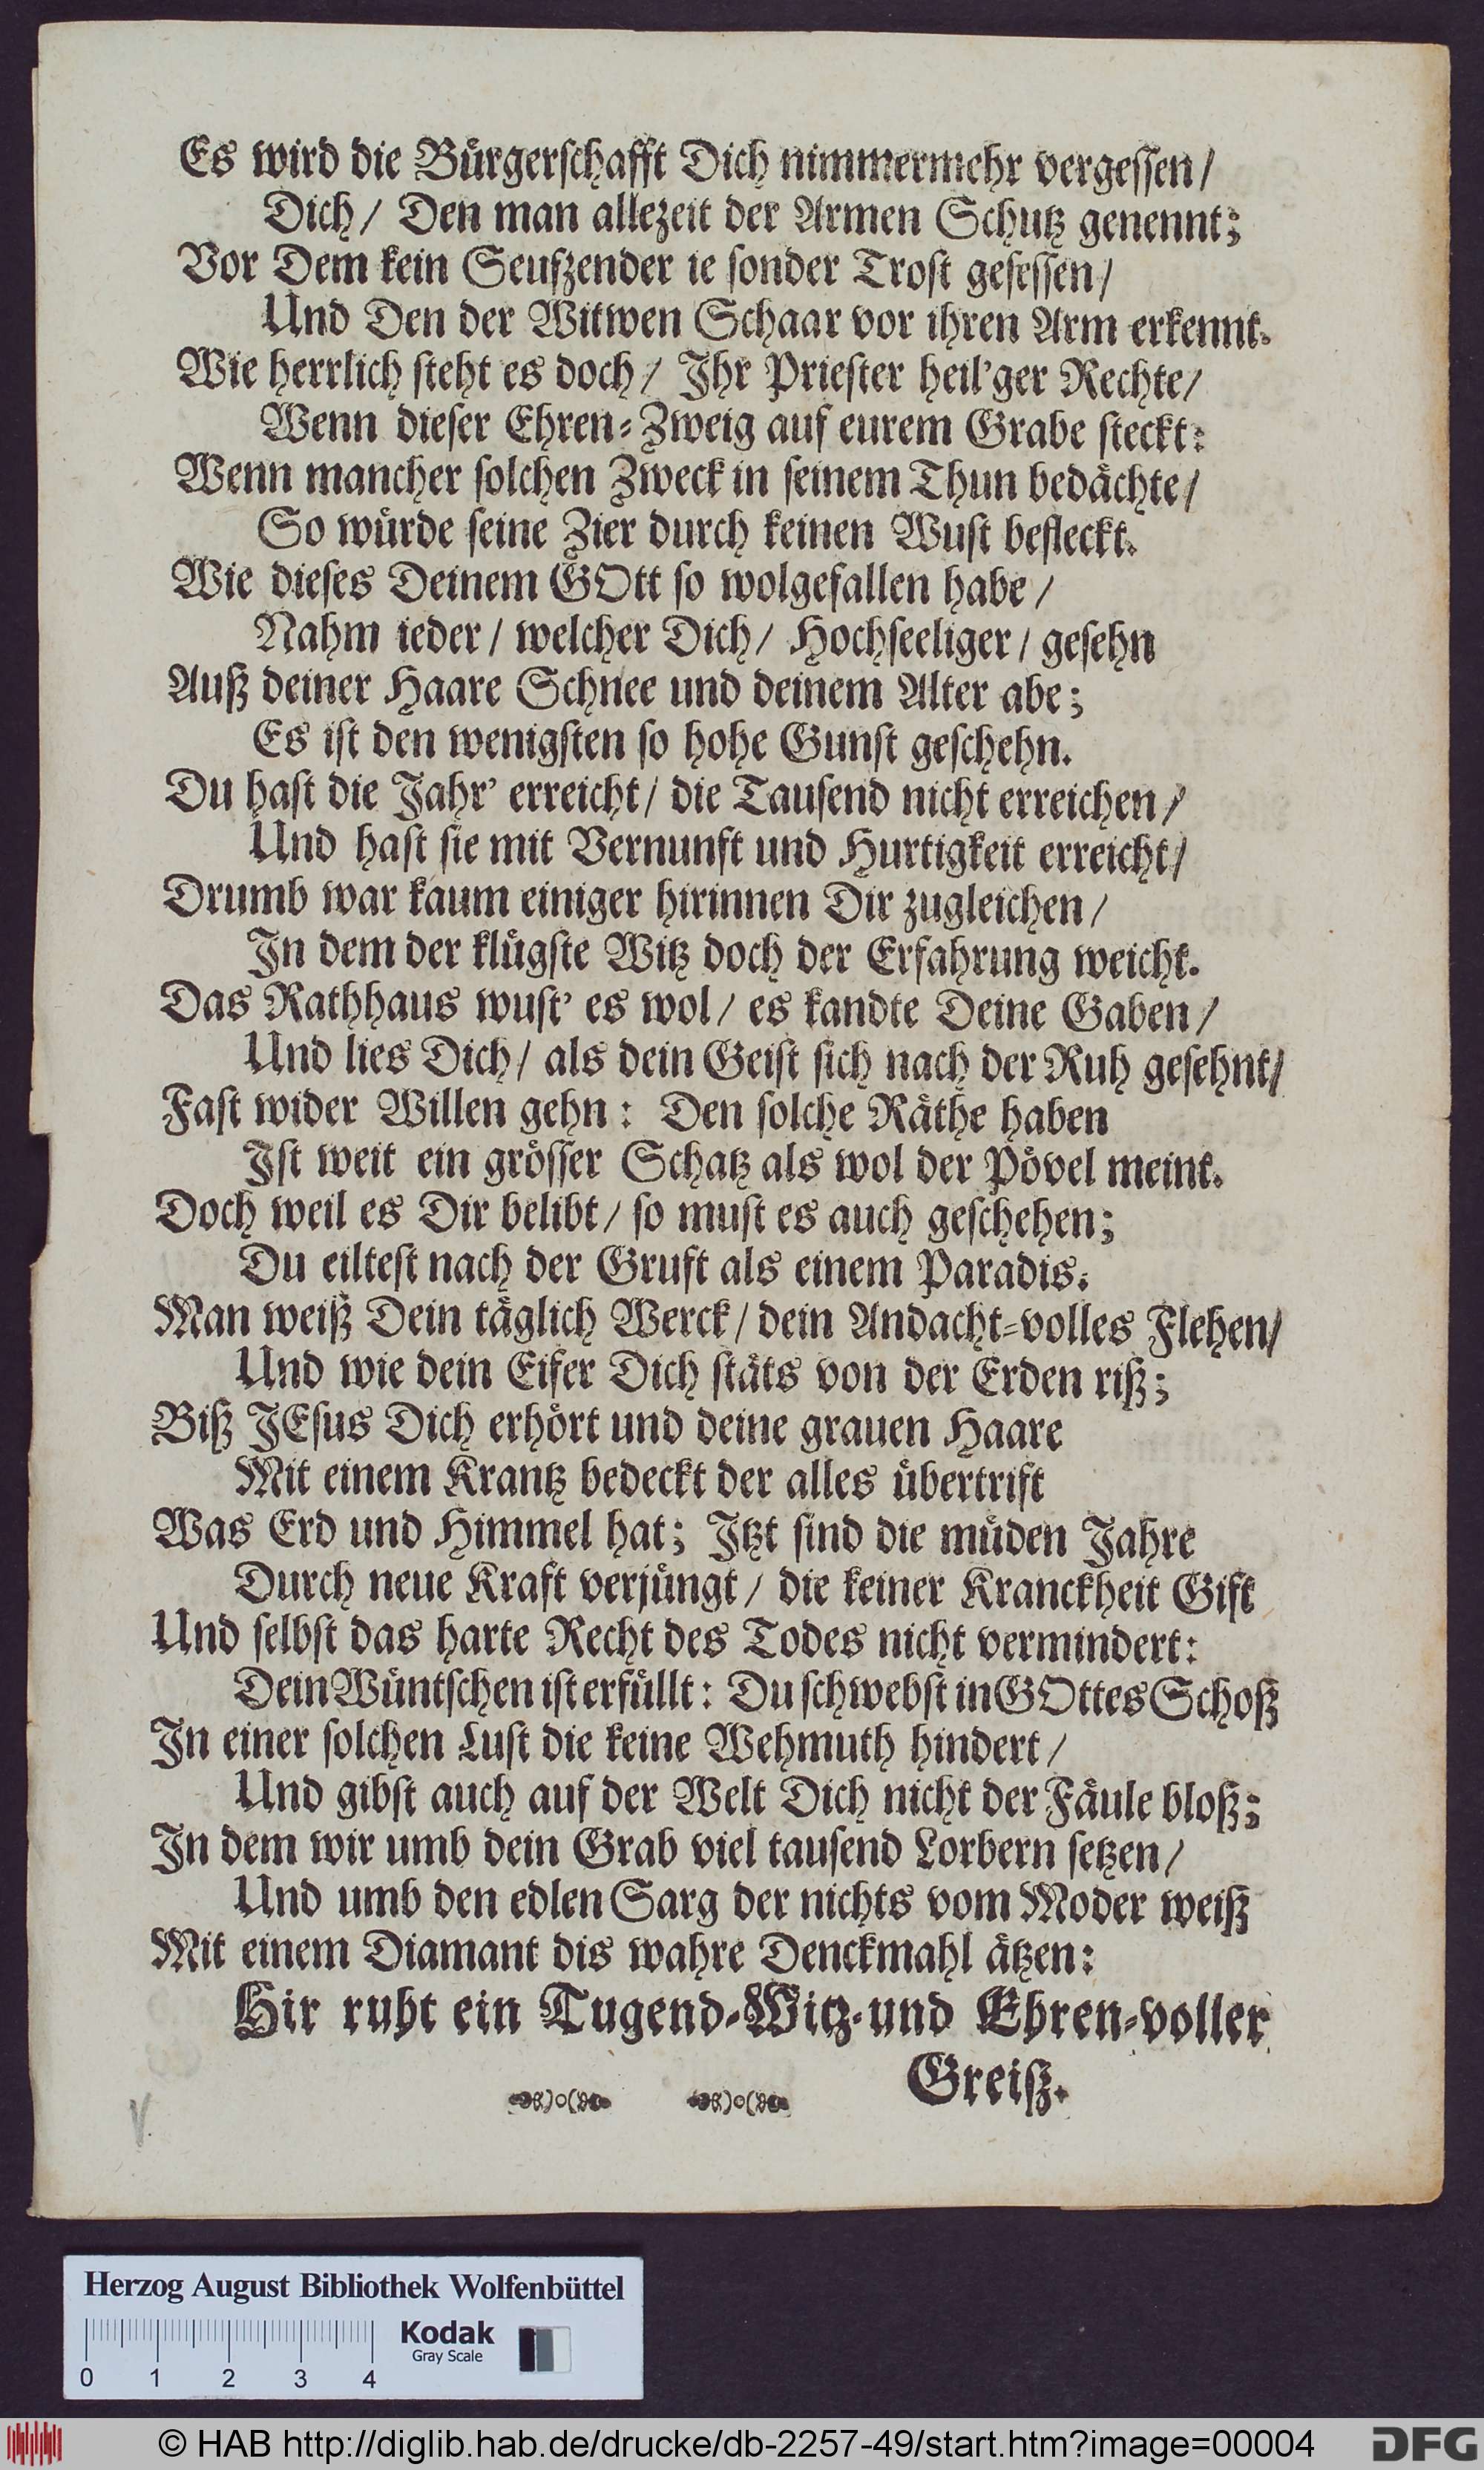 Es wird die Bürgerschafft Dich nimmermehr vergessen/
Dich/ Den man allezeit der Armen Schutz genennt;
Vor Dem kein Seufzender ie sonder Trost gesessen/
Und Den der Witwen Schaar vor ihren Arm erkennt.
Wie herrlich steht es doch/ Ihr Priester heil'ger Rechte/
Wenn dieser Ehren-Zweig auf eurem Grabe steckt:
Wenn mancher solchen Zweck in seinem Thun bedächte/
So würde seine Zier durch keinen Wust befleckt.
Wie dieses Deinem GOtt so wolgefallen habe/
Nahm ieder/ welcher Dich/ Hochseeliger/ gesehn
Auß deiner Haare Schnee und deinem Alter abe;
Es ist den wenigsten so hohe Gunst geschehn.
Du hast die Jahr' erreicht/ die Tausend nicht erreichen/
Und hast sie mit Vernunft und Hurtigkeit erreicht/
Drumb war kaum einiger hirinnen Dir zugleichen/
In dem der klügste Witz doch der Erfahrung weicht.
Das Rathhaus wust' es wol/ es kandte Deine Gaben/
Und lies Dich/ als dein Geist sich nach der Ruh gesehnt/
Fast wider Willen gehn: Den solche Räthe haben
Ist weit ein grösser Schatz als wol der Pövel meint.
Doch weil es Dir belibt/ so must es auch geschehen;
Du eiltest nach der Gruft als einem Paradis.
Man weiß Dein täglich Werck/ dein Andacht-volles Flehen/
Und wie dein Eifer Dich stäts von der Erden riß;
Biß JEsus Dich erhört und deine grauen Haare
Mit einem Krantz bedeckt der alles übertrift
Was Erd und Himmel hat; Itzt sind die müden Jahre
Durch neue Kraft verjüngt/ die keiner Kranckheit Gift
Und selbst das harte Recht des Todes nicht vermindert:
Dein Wüntschen ist erfüllt: Du schwebst in GOttes Schoß
In einer solchen Lust die keine Wehmuth hindert/
Und gibst auch auf der Welt Dich nicht der Fäule bloß;
In dem wir umb dein Grab viel tausend Lorbern setzen/
Und umb den edlen Sarg der nichts vom Moder weiß
Mit einem Diamant dis wahre Denckmahl ätzen:
Hir ruht ein Tugend-Witz-und Ehren-voller
Greiß.
Herzog August Bibliothek Wolfenbüttel
Kodak
Gray Scale
0 1 2 3 4
© HAB http://diglib.hab.de/drucke/db-2257-49/start.htm?image=00004
DFG